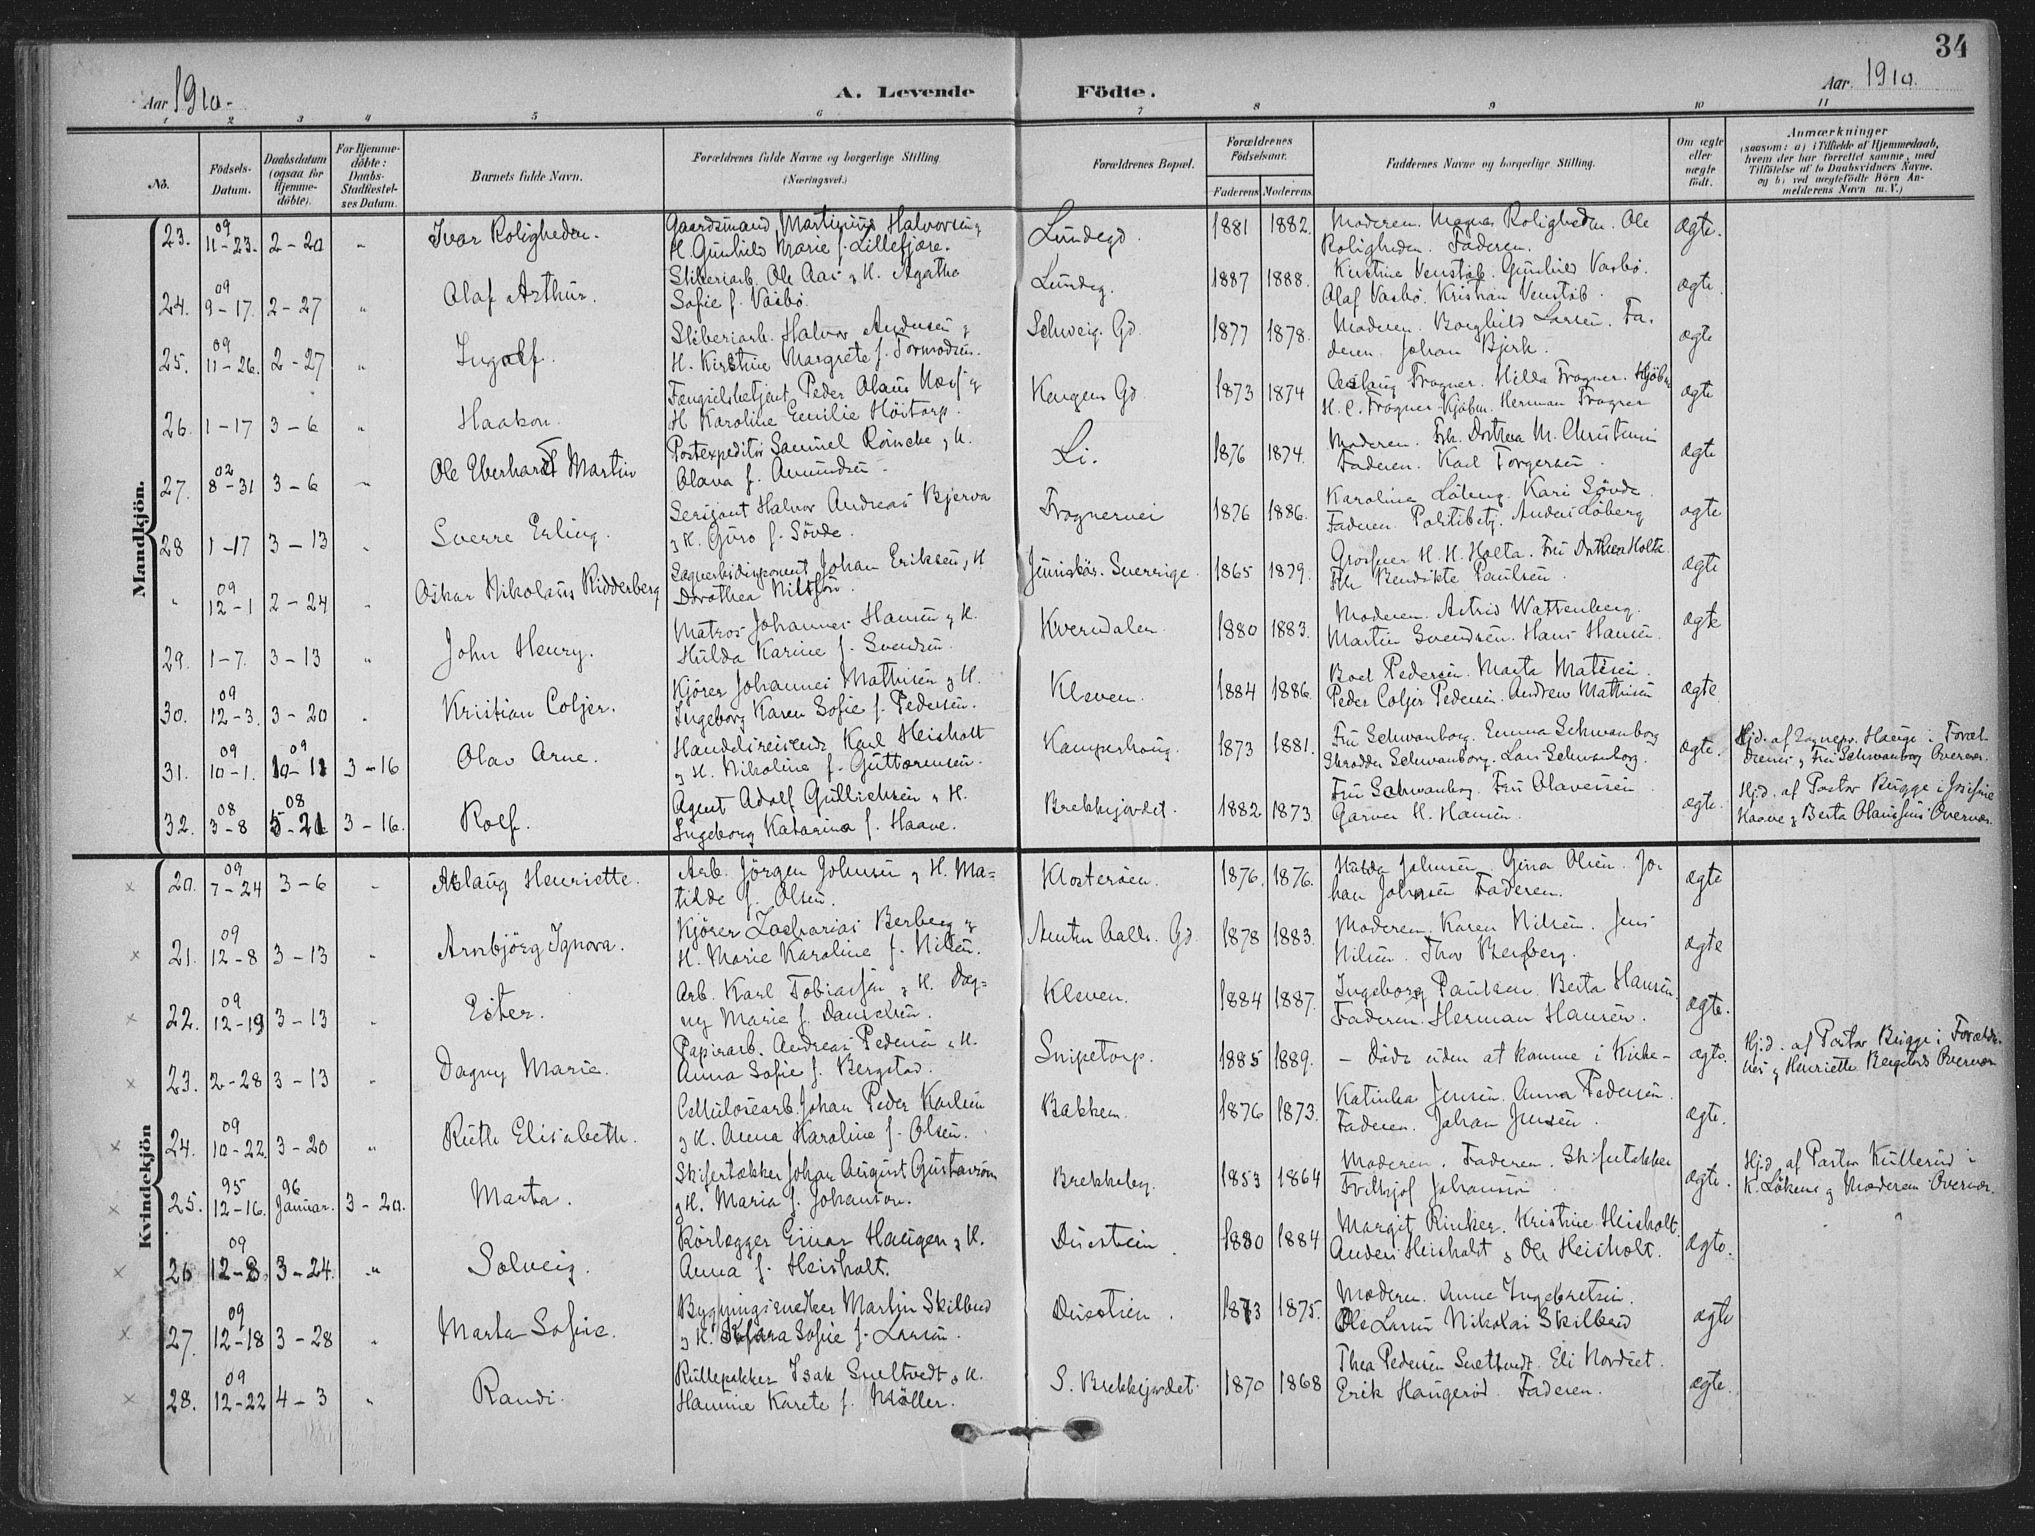 34
Aar 1910.
A. Levende Födte.
Aar 1910.
1 2 3 4 5 6 7 8 9 10 11
No.
Födsels-Datum.
Daabsdatum (ogsaa for Hjemme-döbte).
For Hjemme-döbte: Daabs-Stadfæstel-ses Datum.
Barnets fulde Navn.
Forældrenes fulde Navne og borgerlige Stilling
(Næringsvei.)
Forældrenes Bopæl.
Forældrenes Födselsaar.
Faderens Moderens
Faddernes Navne og borgerlige Stilling.
Om ægte eller uægte födt.
Anmærkninger
(saasom: a) i Tilfælde af Hjemmedaab,
hvem der har forrettet samme, med
Tilföielse af to Daabsvidners Navne,
og b) ved uægtefödte Börn An-
melderens Navn m. V.)
Mandkjön.
23. 09 11-23. 2-20 " Ivar Roligheden. Gaardsmand Martinius Halvorsen og
H. Gunhild Marie f. Lillefjære. Lundegd. 1881 1882. Moderen. Magna Roligheden. Ole
Roligheden. Faderen. ægte.
24. 09 9-17. 2-27 " Olaf Arthur. Sliberiarb. Ole Aas og H. Agathe
Sofie f. Vasbø. Lundeg. 1887 1888. Kirstine Venstøb. Gunhild Vasbø.
Olaf Vasbø. Kristian Venstøb. ægte.
25. 09 11-26. 2-27 " Ingolf. Sliberiarb. Halvor Andersen og
H. Kirstine Margrete f. Tormodsen. Schweig. Gd. 1877 1878. Moderen. Borghild Larsen. Fa-
deren. Johan Bjerk. ægte
26. 1-17 3-6 " Haakon. Fængselsbetjent Peder Olaus Næss og
H Karoline Emilie Høitorp. Kongens Gd. 1873 1874 Aslaug Frogner. Hilda Frogner. Kjøbm
H. C. Frogner Kjøbm. Herman Frogner ægte
27. 02 8-31 3-6 " Ole Eberhardt Martin Postexpeditør Samuel Reincke og H.
Olava f. Amundsen. Li. 1876 1874. Moderen. Frk. Dorthea M. Christensen
Faderen. Karl Torgersen. ægte
28 1-17 3-13 " Sverre Erling. Sersjant Halvor Andreas Bjerva
og H. Guro f. Søvde. Frognervei 1876 1886. Karoline Løberg. Kari Søvde.
Faderen. Politibetj. Anders Løberg ægte
" 09 12-1 2-24 " Oskar Nikolaus Ridderberg Sagverksdisponent Johan Eriksen og H
Dorothea Nilsson. Juniskär. Sverrige. 1865 1879. Grosser H. H. Holta. Fru Dorthea Holta.
Frk Bendikte Paulsen. ægte
29. 1-7. 3-13 " John Henry. Matros Johannes Hansen og H.
Hulda Karine f. Svendsen. Kverndalen. 1880 1883. Moderen. Astrid Wattenberg.
Martin Svendsen. Hans Hansen. ægte
30. 09 12-3. 3-20 " Kristian Coljer. Kjører Johannes Mathisen og H.
Ingeborg Karen Sofie f. Pedersen. Kleven. 1884 1886. Boel Pedersen. Marta Matisen.
Peder Coljer Pedersen. Andrew Mathisen ægte
31. 09 10-1. 09 10-11 3-16 Olav Arne. Handelsreisende Karl Heisholt
og H. Nikoline f. Guttormsen. Kamperhoug. 1873 1881. Fru Schwanborg. Emma Schwanborg
Skrædder Schwanborg. Lars Schwanborg. ægte. Hjd. af Sognepr. Hauge i Foræl-
drenes og Fru Schwanborg Overvær.
32. 08 3-8 08 5-21 3-16. Rolf. Agent Adolf Gullichsen og H.
Ingeborg Katarina f. Haave. Brekkejordet. 1882 1873 Fru Schwanborg. Fru Olavesen.
Garver H. Hansen. ægte. Hjd. af Pastor Bugge i Josefine
Haave og Berta Olausens Overvær.
Kvindekjön
20. 09 7-24 3-6 " Aslaug Henriette. Arb. Jørgen Johnsen og H. Ma-
tilde f. Olsen. Klosterøen. 1876. 1876. Hulda Johnsen Gina Olsen. Jo-
han Johnsen Faderen. ægte
21. 09 12-8 3-13 " Arnbjörg Ignora. Kjører Zacharias Berberg og
H. Marie Karoline f. Nilsen. Anton Aalls. Gd. 1878 1883. Moderen. Karen Nilsen. Jens
Nilsen. Thor Bergberg. ægte
22. 09 12-19 3-13 " Ester. Arb. Karl Tobiassen og H. Dag-
ny Marie f. Danielsen. Kleven. 1884 1887. Ingeborg Paulsen. Berta Hansen.
Faderen. Herman Hansen. ægte.
23. 2-28 3-13 " Dagny Marie. Papirarb. Andreas Pedersen og H.
Anna Sofie f. Bergstad. Snipetorp. 1885 1889. – Døde uden at komme i Kirke – ægte. Hjd. af Pastor Bugge i Forældre-
nes og Henriette Bergstads Overvær
24. 09 10-22. 3-20 " Ruth Elisabeth. Cellulosearb. Johan Peder Karlsen
og H. Anna Karoline f. Olsen. Bakken. 1876 1873. Katinka Jensen. Anna Pedersen.
Faderen. Johan Jensen. ægte.
25. 95 12-16. 96 Januar. 3-20. Marta. Skifertækker Johan August Gustavson
og H. Maria f. Johanson. Brekkeby. 1853 1864 Moderen. Faderen. Skifertækker
Frithjof Johanson ægte. Hjd. af Pastor Kullerud i
K. Løkens og Moderens Overvær.
26 09 12-8. 3-24. " Solveig. Rørlægger Einar Haugen og H.
Anna f. Heisholt. Duestien. 1880 1884 Margit Rinker. Kristine Heisholt.
Anders Heisholt og Ole Heisholt. ægte.
27. 09 12-18 3-28 " Marta Sofie. Bygningssnedker Martin Skilbred
og H. Sara Sofie f. Larsen. Duestien. 1873 1875. Moderen. Anne Ingebretsen.
Ole Larsen Nikolai Skilbred ægte
28. 09 12-22 4-3 " Randi. Rullepakker Isak Sneltvedt og H.
Hanne Karete f. Møller. S. Brekkejordet. 1870 1868 Thea Pedersen Sneltvedt. Eli Nordset.
Erik Haugerød. Faderen. ægte.